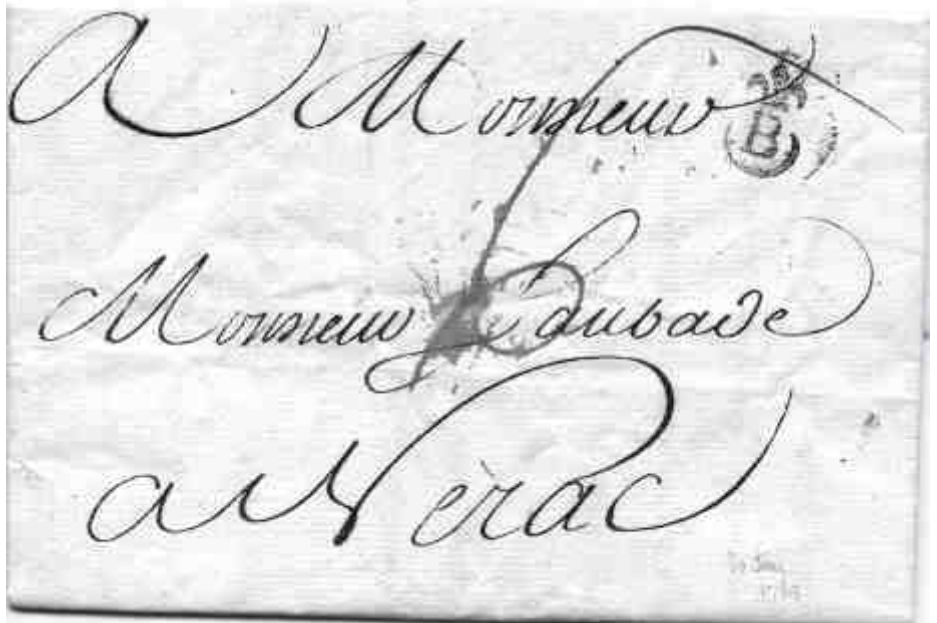 A Monsieur
Monsieur Laubade
a Nèrac